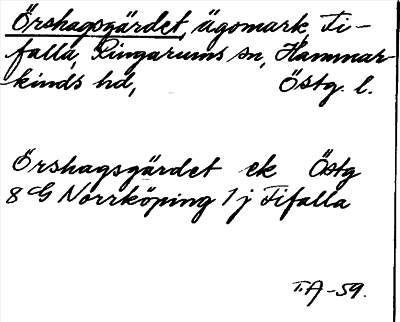 Örshagsgärdet, ägomark, Fi-
falla, Ringarums sn, Hammar-
kinds hd, Östg. l.
Örshagsgärdet ek Östg
8 G Norrköping 1 j Fifalla
T.A-59.